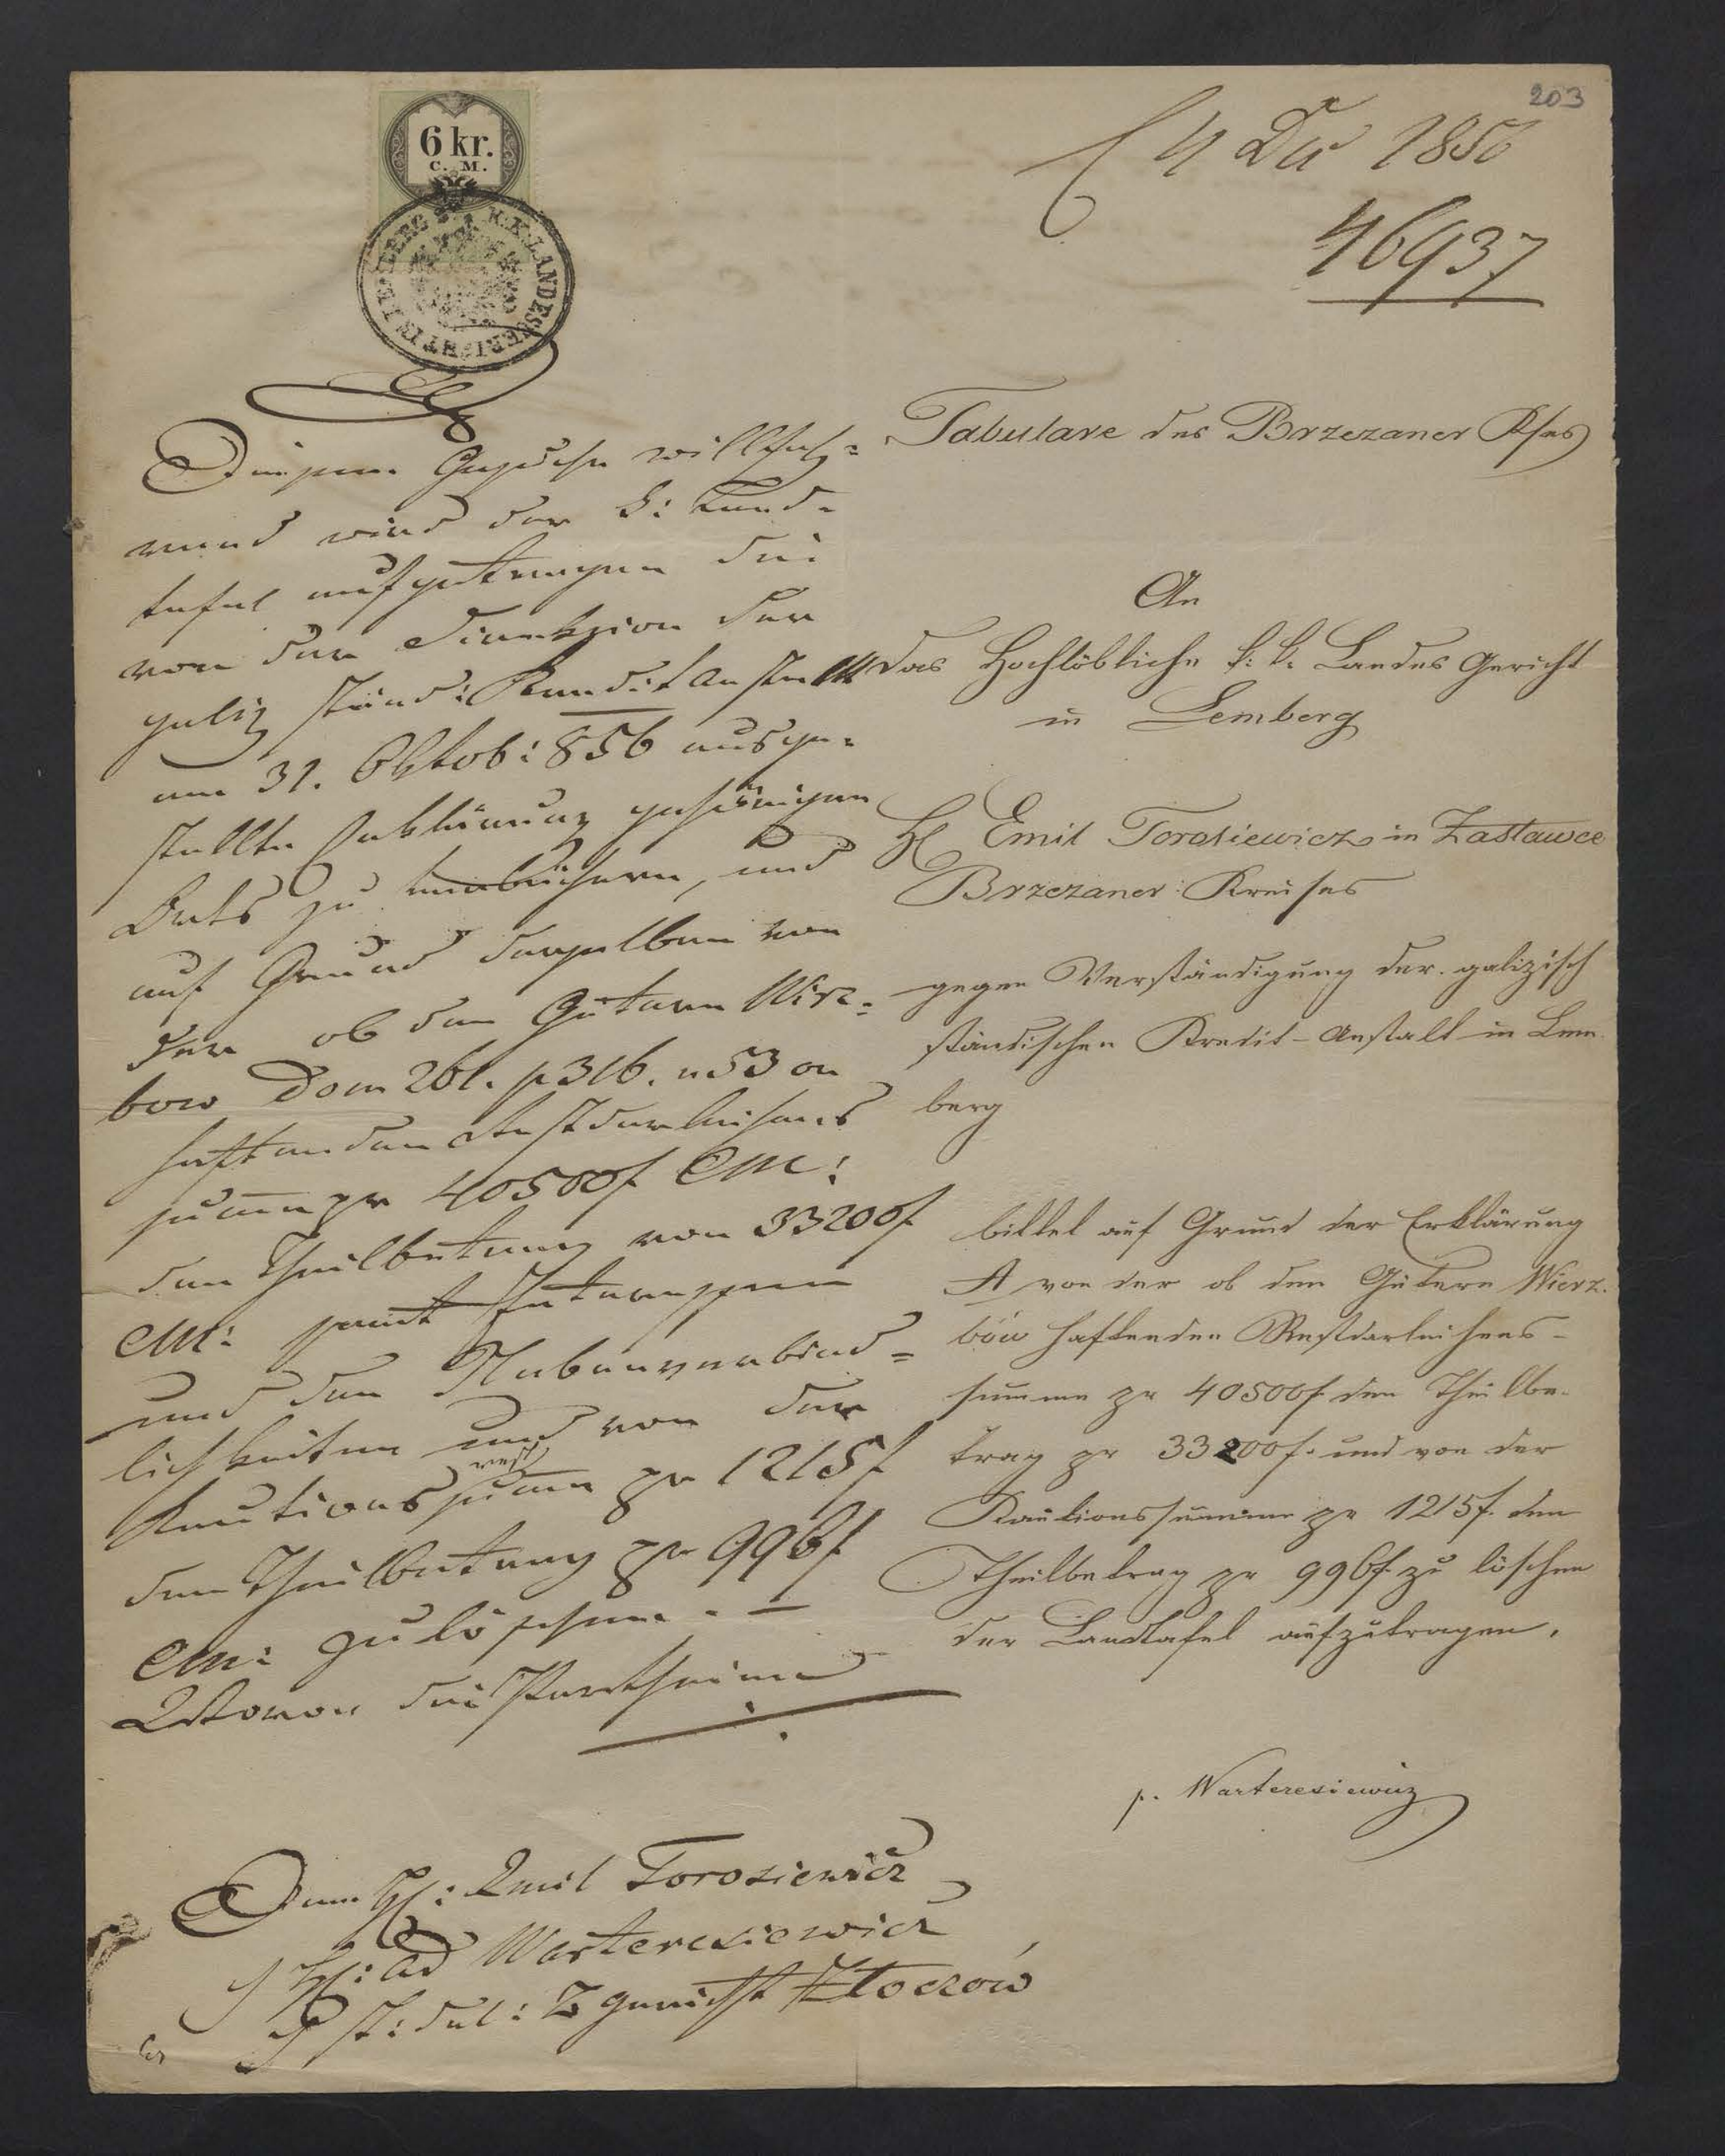 203
4 Dez 1856
46937
6 kr.
C. M.
K. K. LANDESGERICHT IN LEMBERG
Tabulare des Brzezaner Kses
An
das Hochlöbliche k: k. Landes Gericht
in Lemberg
H Emil Torosiewicz in Zastawce
Brzezaner Kreises
gegen Verständigung der galizisch
ständischen Kredit-Anstalt in Lem
berg
bittet auf Grund der Erklärung
A von der ob den Gütern Wierz-
bów haftenden Restdarleihens-
summe pr 40500f den Theilbe-
trag pr 33200f. und von der
Kautionssumme pr 1215f. den
Theilbetrag pr 996f zu löschen
der Landtafel aufzutragen.
p. Warteresiewicz
Diesem Gesuche willfah=
rend wird der k: Land=
tafel aufgetragen die
von der Direkzion der
galiz ständ: Kredit Anstalt
am 31. Oktob: 856 ausge=
stellte Erklärung gehörigen
Orts zu verbüchern, und
auf Grund derselben von
der ob den Gütern Wirz=
bow Dom 261. p 316. n 53 on
haftenden Restdarleihens
summe pr 40500f CM:
den Theilbetrag von 33200f
CM: sammt Interessen
und den Nebenverbind=
lichkeiten und von der
Kautions rest summe pr 1215f
den Theilbetrag pr 996f
CM: zu löschen. —
Wovon die Partheien
Dem H: Emil Torosiewicz
H: Ad Warteresiewicz
st: del: B gericht Złoczów